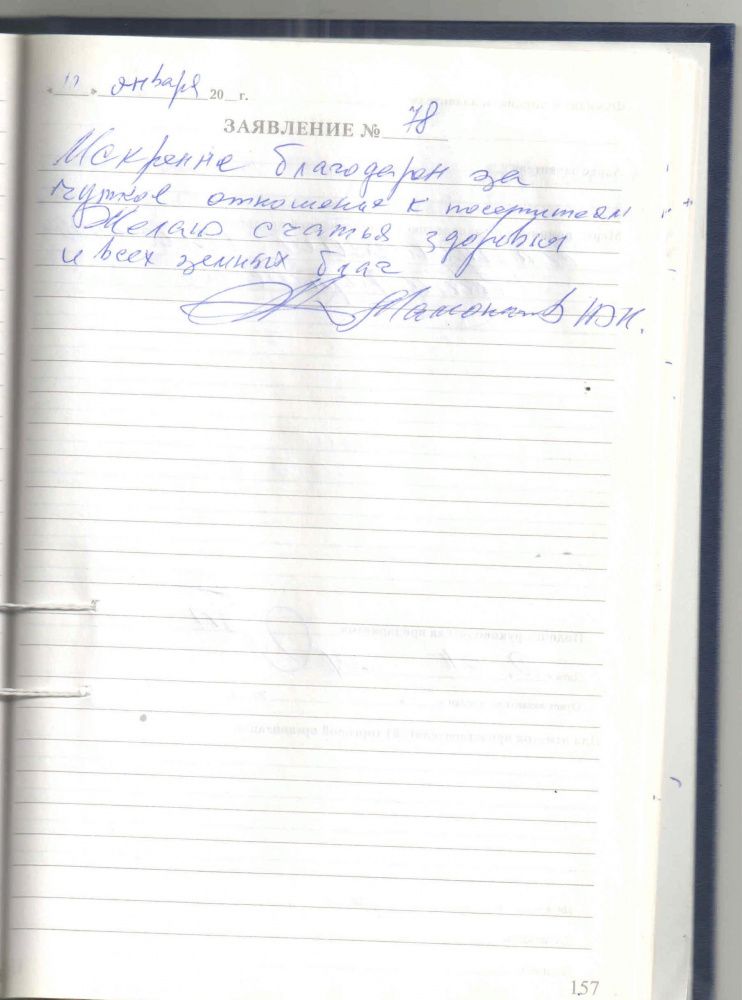 « 11 » января 20 г.
ЗАЯВЛЕНИЕ № 78
Искренне благодарен за
чуткое отношение к посетителям
Желаю счастья здоровья
и всех земных благ
157